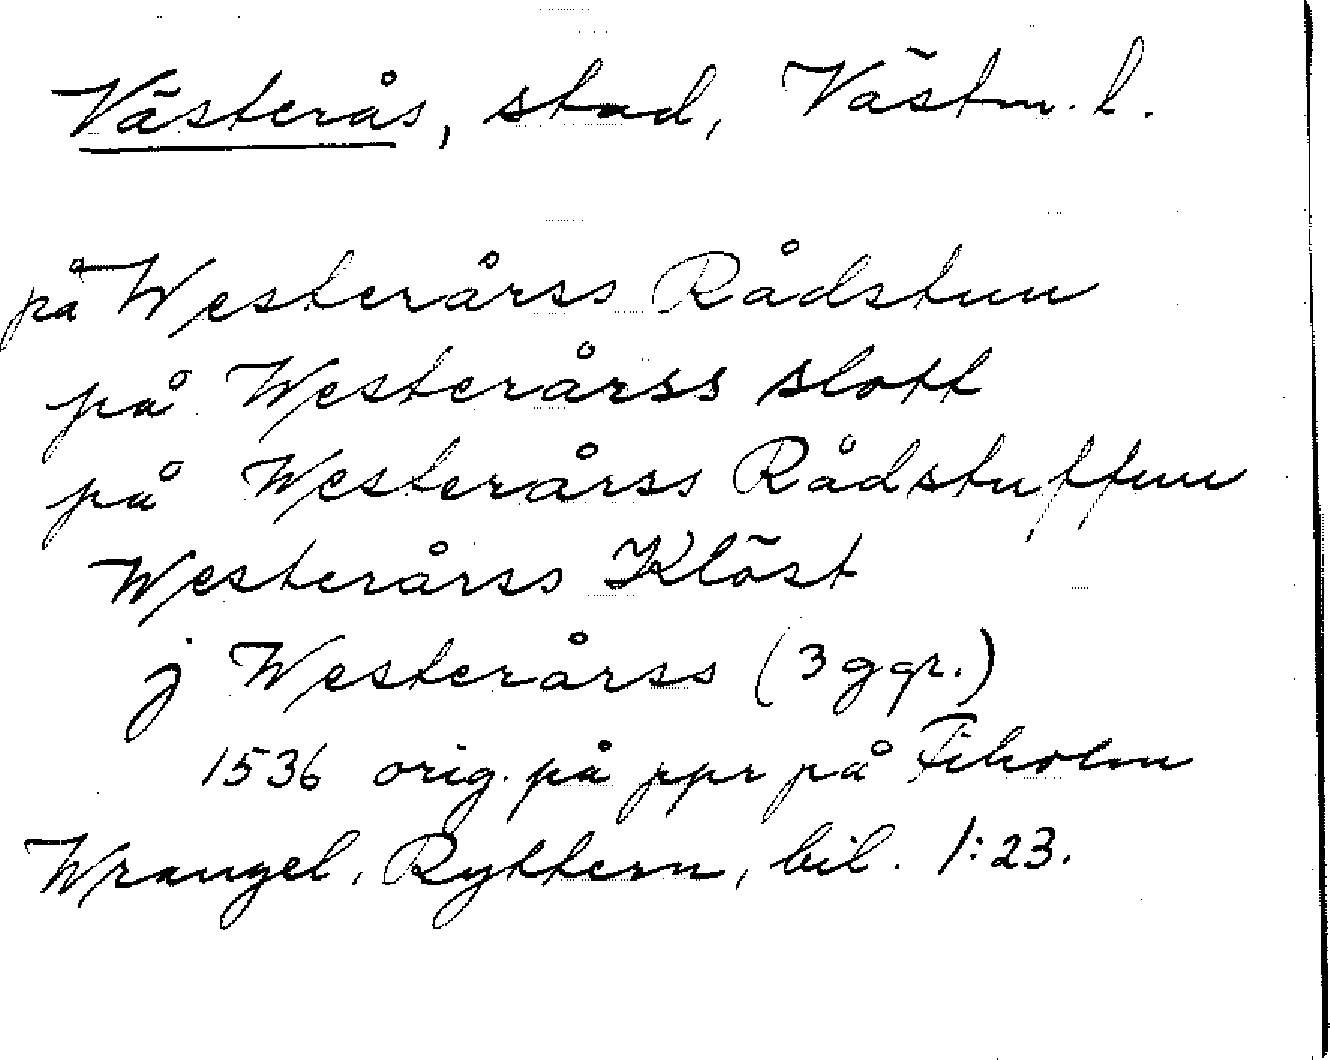 Västerås, stad, Västm. l.
på Westerårss Rådstuu
på Westerårss slott
på Westerårss Rådstuffuu
Westerårss Klöst
j Westerårss (3 ggr.)
1536 orig. på ppr på Fiholm
Wrangel, Ryttern, bil. 1:23.